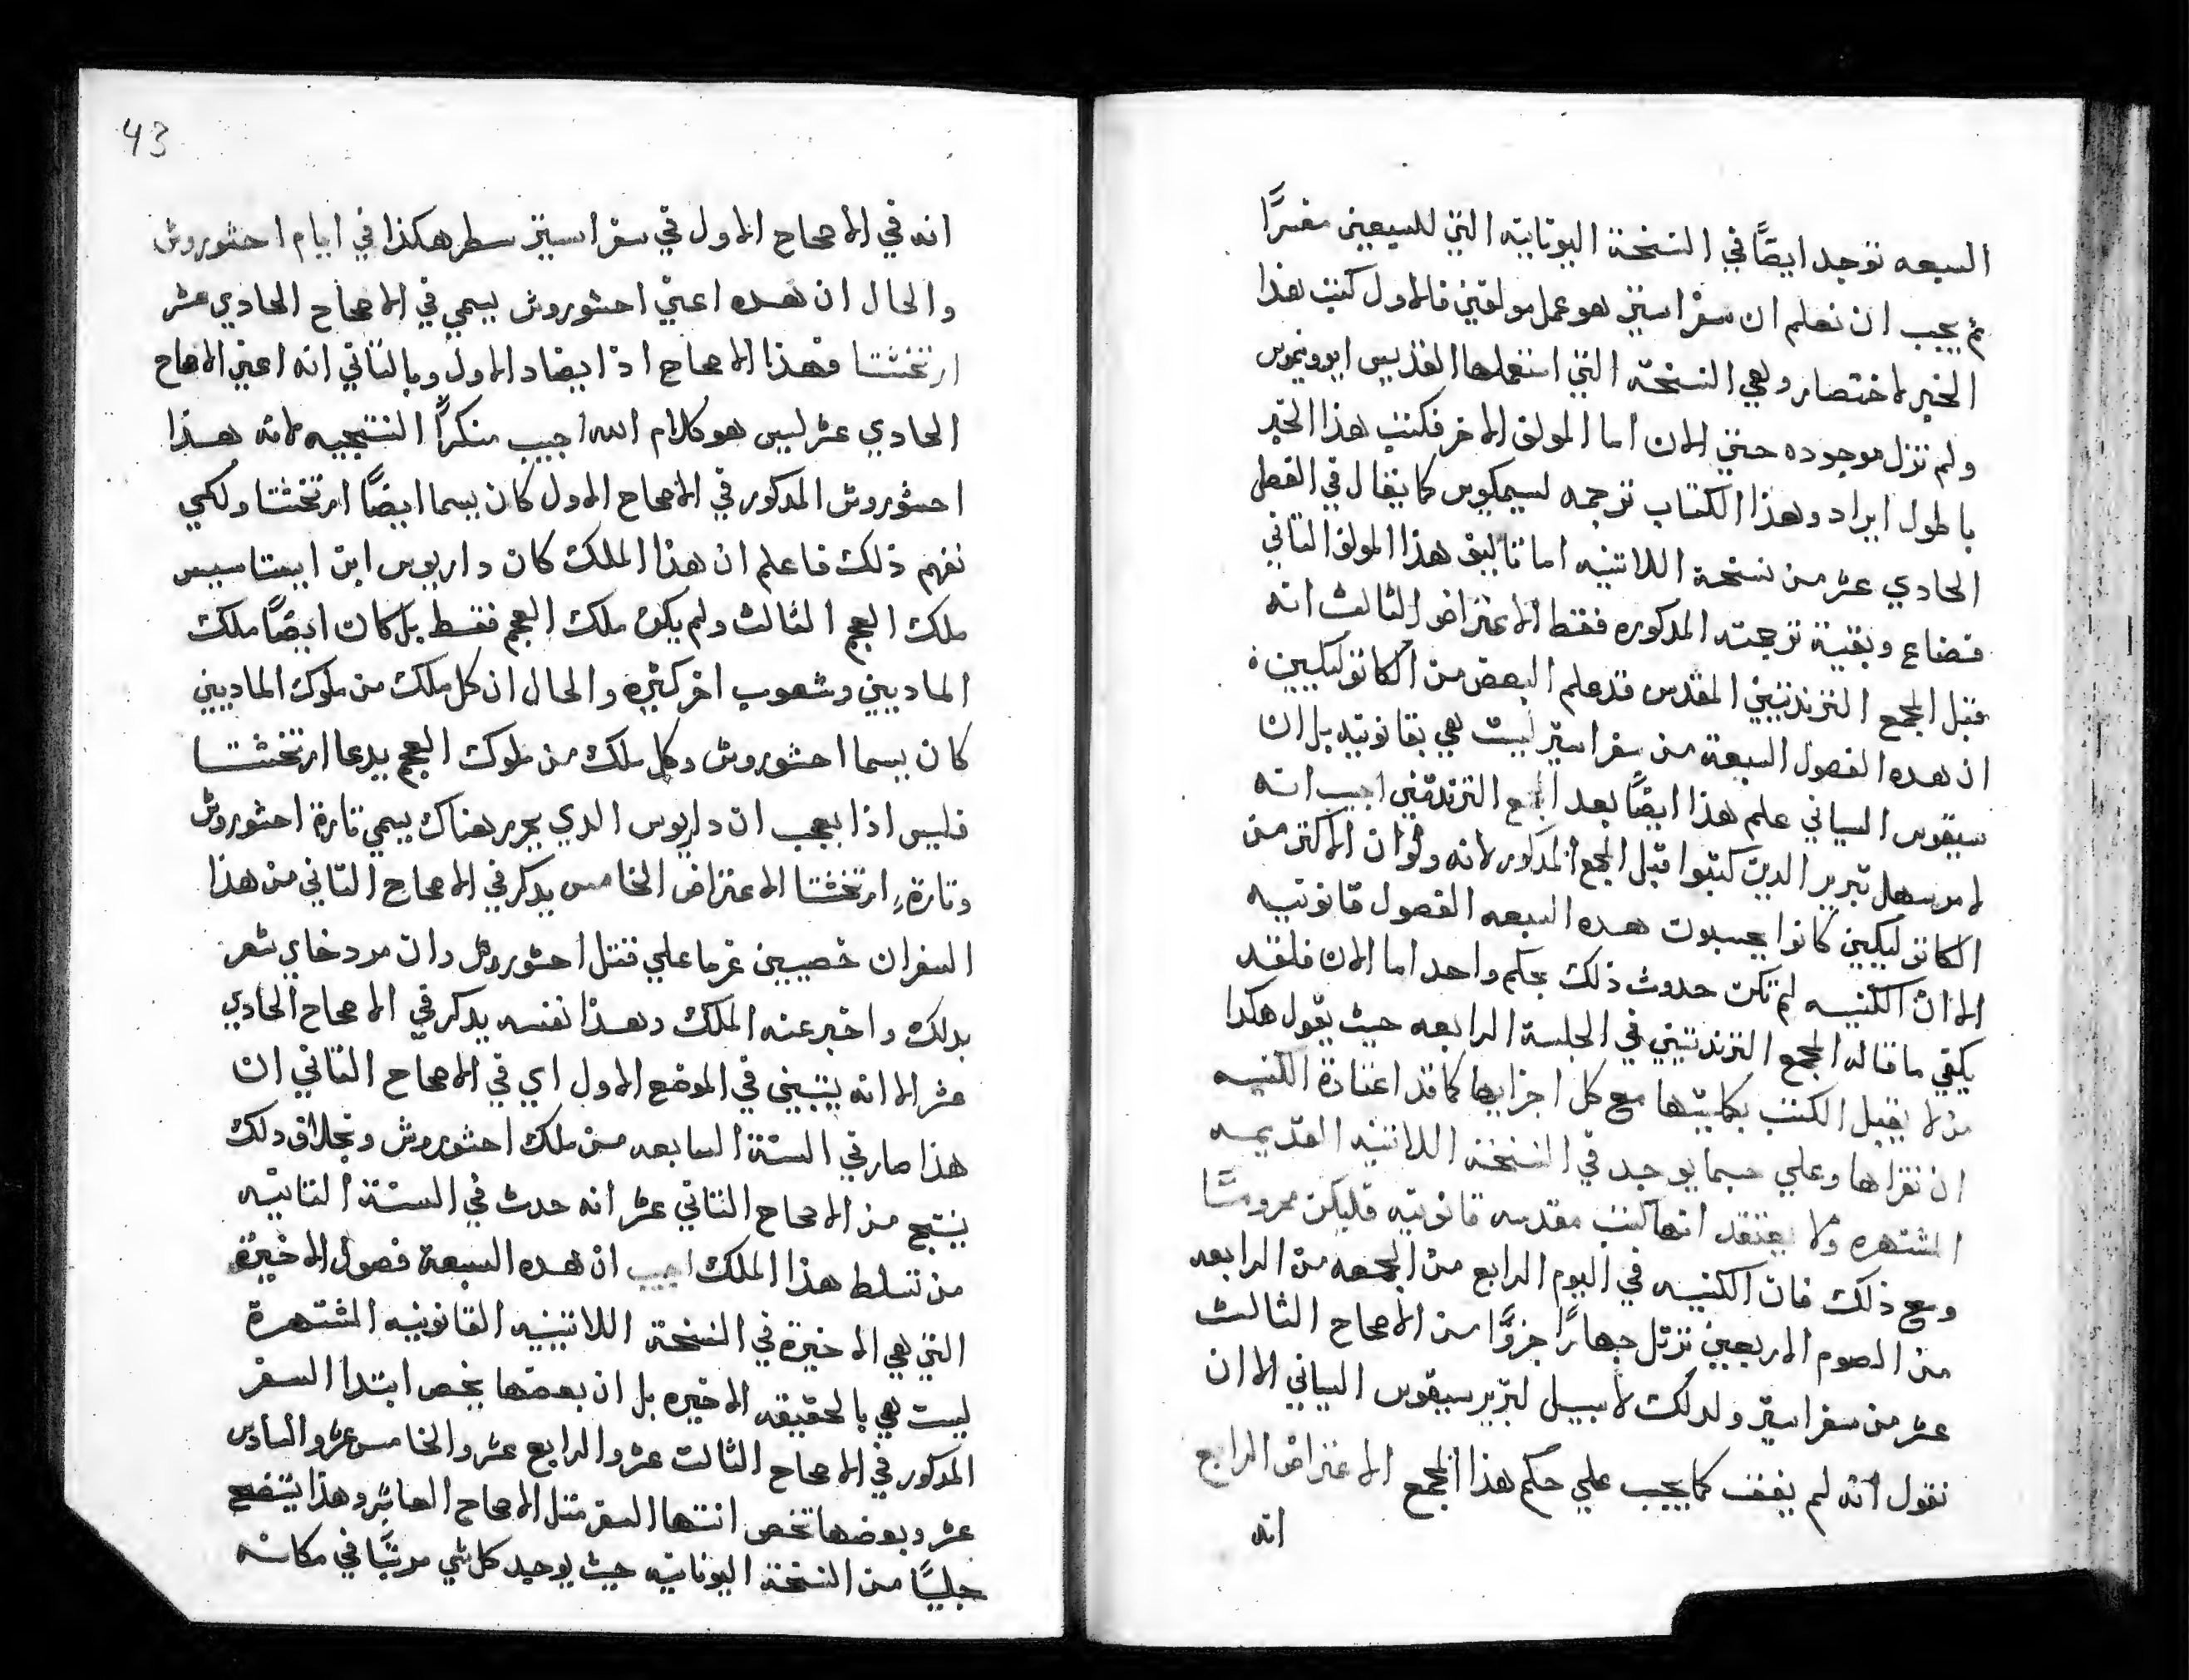 السبعه توجد ايضًا في النسخة اليونانيه التي للسبعين مفسرًا
ثم يجب ان نعلم ان سفر استير هو عمل مولفين فالاول كتب هذا
الخبر لاختصار وهي النسخة التي استعملها القديس ايرونيموس
ولم تزل موجوده حتي الان اما المولف الاخر فكتب هذا الخبر
باطول ايراد وهذا الكتاب ترجمه ليسيمكوس كما يقال في الفصل
الحادي عشر من نسخة اللاتنيه اما تاليف هذا المولف الثاني
فضاع وبقية ترجمته المذكوره فقط الاعتراض الثالث انه
قبل المجمع التريدنتيني المقدس قد علم البعض من الكاتوليكيين
ان هده الفصول السبعة من سفر استير ليست هي بقانونيه بل ان
سيقوس السياني علم هذا ايضًا بعد المجمع التريدنتيني اجيب انه
لامر سهل تبرير الدين كتبوا قبل المجمع المدكور لانه ولو ان الاكتر من
الكاتوليكيين كانوا يحسبون هده السبعه الفصول قانونيه
الا ان الكنيسه لم تكن حدوث ذلك بحكم واحد اما الان فلقد
يكفي ما قاله المجمع التريدنتيني في الجلسة الرابعه حيث يقول هكدا
من لا يقبل الكتب بكاملها مع كل اجزايها كما قد اعتادة الكنيسه
ان تقراها وعلي حسبما يوجد في النسخة اللاتنيه القديمه
المشتهره ولا يعتقد انها كتب مقدسه قانونيه فليكن محرومًا
ومع ذلك فان الكنيسه في اليوم الرابع من الجمعه من الرابعه
من الصوم الاربعين ترتل جهارًا جزوًا من الاصحاح الثالث
عشر من سفر استير ولدلك لا سبيل لتبرير سيقوس السياني الا ان
نقول انه لم يقف كما يجب علي حكم هذا المجمع الاعتراض الرابع
انه
43
انه في الاصحاح الاول في سفر استير سطر هكذا في ايام احشوروش
والحال ان هده اعني احشوروش يسمي في الاصحاح الحادي عشر
ارتخشتا فهذا الاصحاح اذ ايضاد الاول وبالتاني انه اعني الاصحاح
الحادي عشر ليس هو كلام الله اجيب منكرًا النتيجيه لانه هذا
احشوروش المدكور في الاصحاح الاول كان يسما ايضًا ارتخشتا ولكي
نفهم ذلك فاعلم ان هذا الملك كان داريوس ابن ايستاسبس
ملك العجم الثالث ولم يكن ملك العجم فقط بل كان ايضًا ملك
الماديين وشعوب اخر كثيره والحال ان كل ملك من ملوك الماديين
كان يسما احشوروش وكل ملك من ملوك العجم يدعا ارتخشتا
فليس اذا بعجب ان داريوس الدي يحرر هناك يسمي تارة احشوروش
وتارة ارتخشتا الاعتراض الخامس يدكر في الاصحاح التاني من هذا
السفر ان خصيين عزما علي قتل احشوروش وان مردخاي شعر
بدلك واخبر عنه الملك وهذا نفسه يدكر في الاصحاح الحادي
عشر الا انه يتبين في الموضع الاول اي في الاصحاح التاني ان
هذا صار في السنة السابعه من ملك احشوروش وبخلاف دلك
ينتج من الاصحاح التاني عشر انه حدث في السنة التانيه
من تسلط هذا الملك اجيب ان هده السبعة فصول الاخيرة
التي هي الاخيرة في النسخة اللاتينيه القانونيه المشتهرة
ليست هي بالحقيقه الاخيره بل ان بعضها يخص ابتدا السفر
المدكور في الاصحاح الثالت عشر والرابع عشر والخامس عشر والسادس
عشر وبعضها تخص انتها السفر متل الاصحاح العاشر وهذا يتضح
جليًا من النسخة اليونانيه حيث يوجد كل شي مرتبًا في مكانه